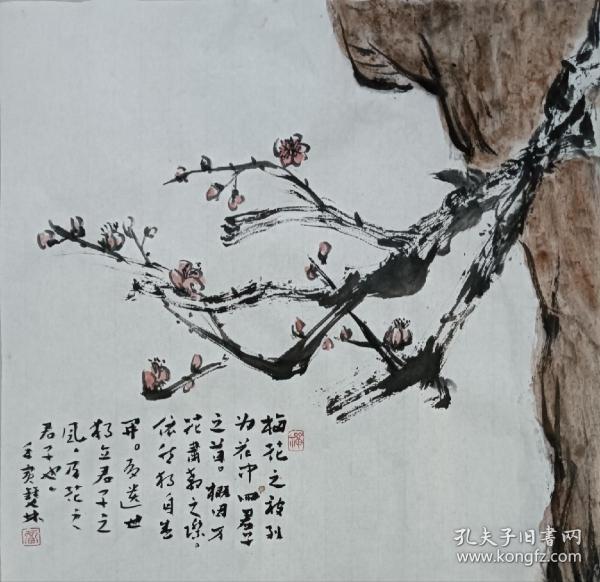 梅花之被列
为花中四君子
之首。概因万
花萧索之际。
依然独自迎
开。有遗世
独立君子之
风。有花之
君子也。
壬寅
孔夫子旧书网
www.kongfz.com